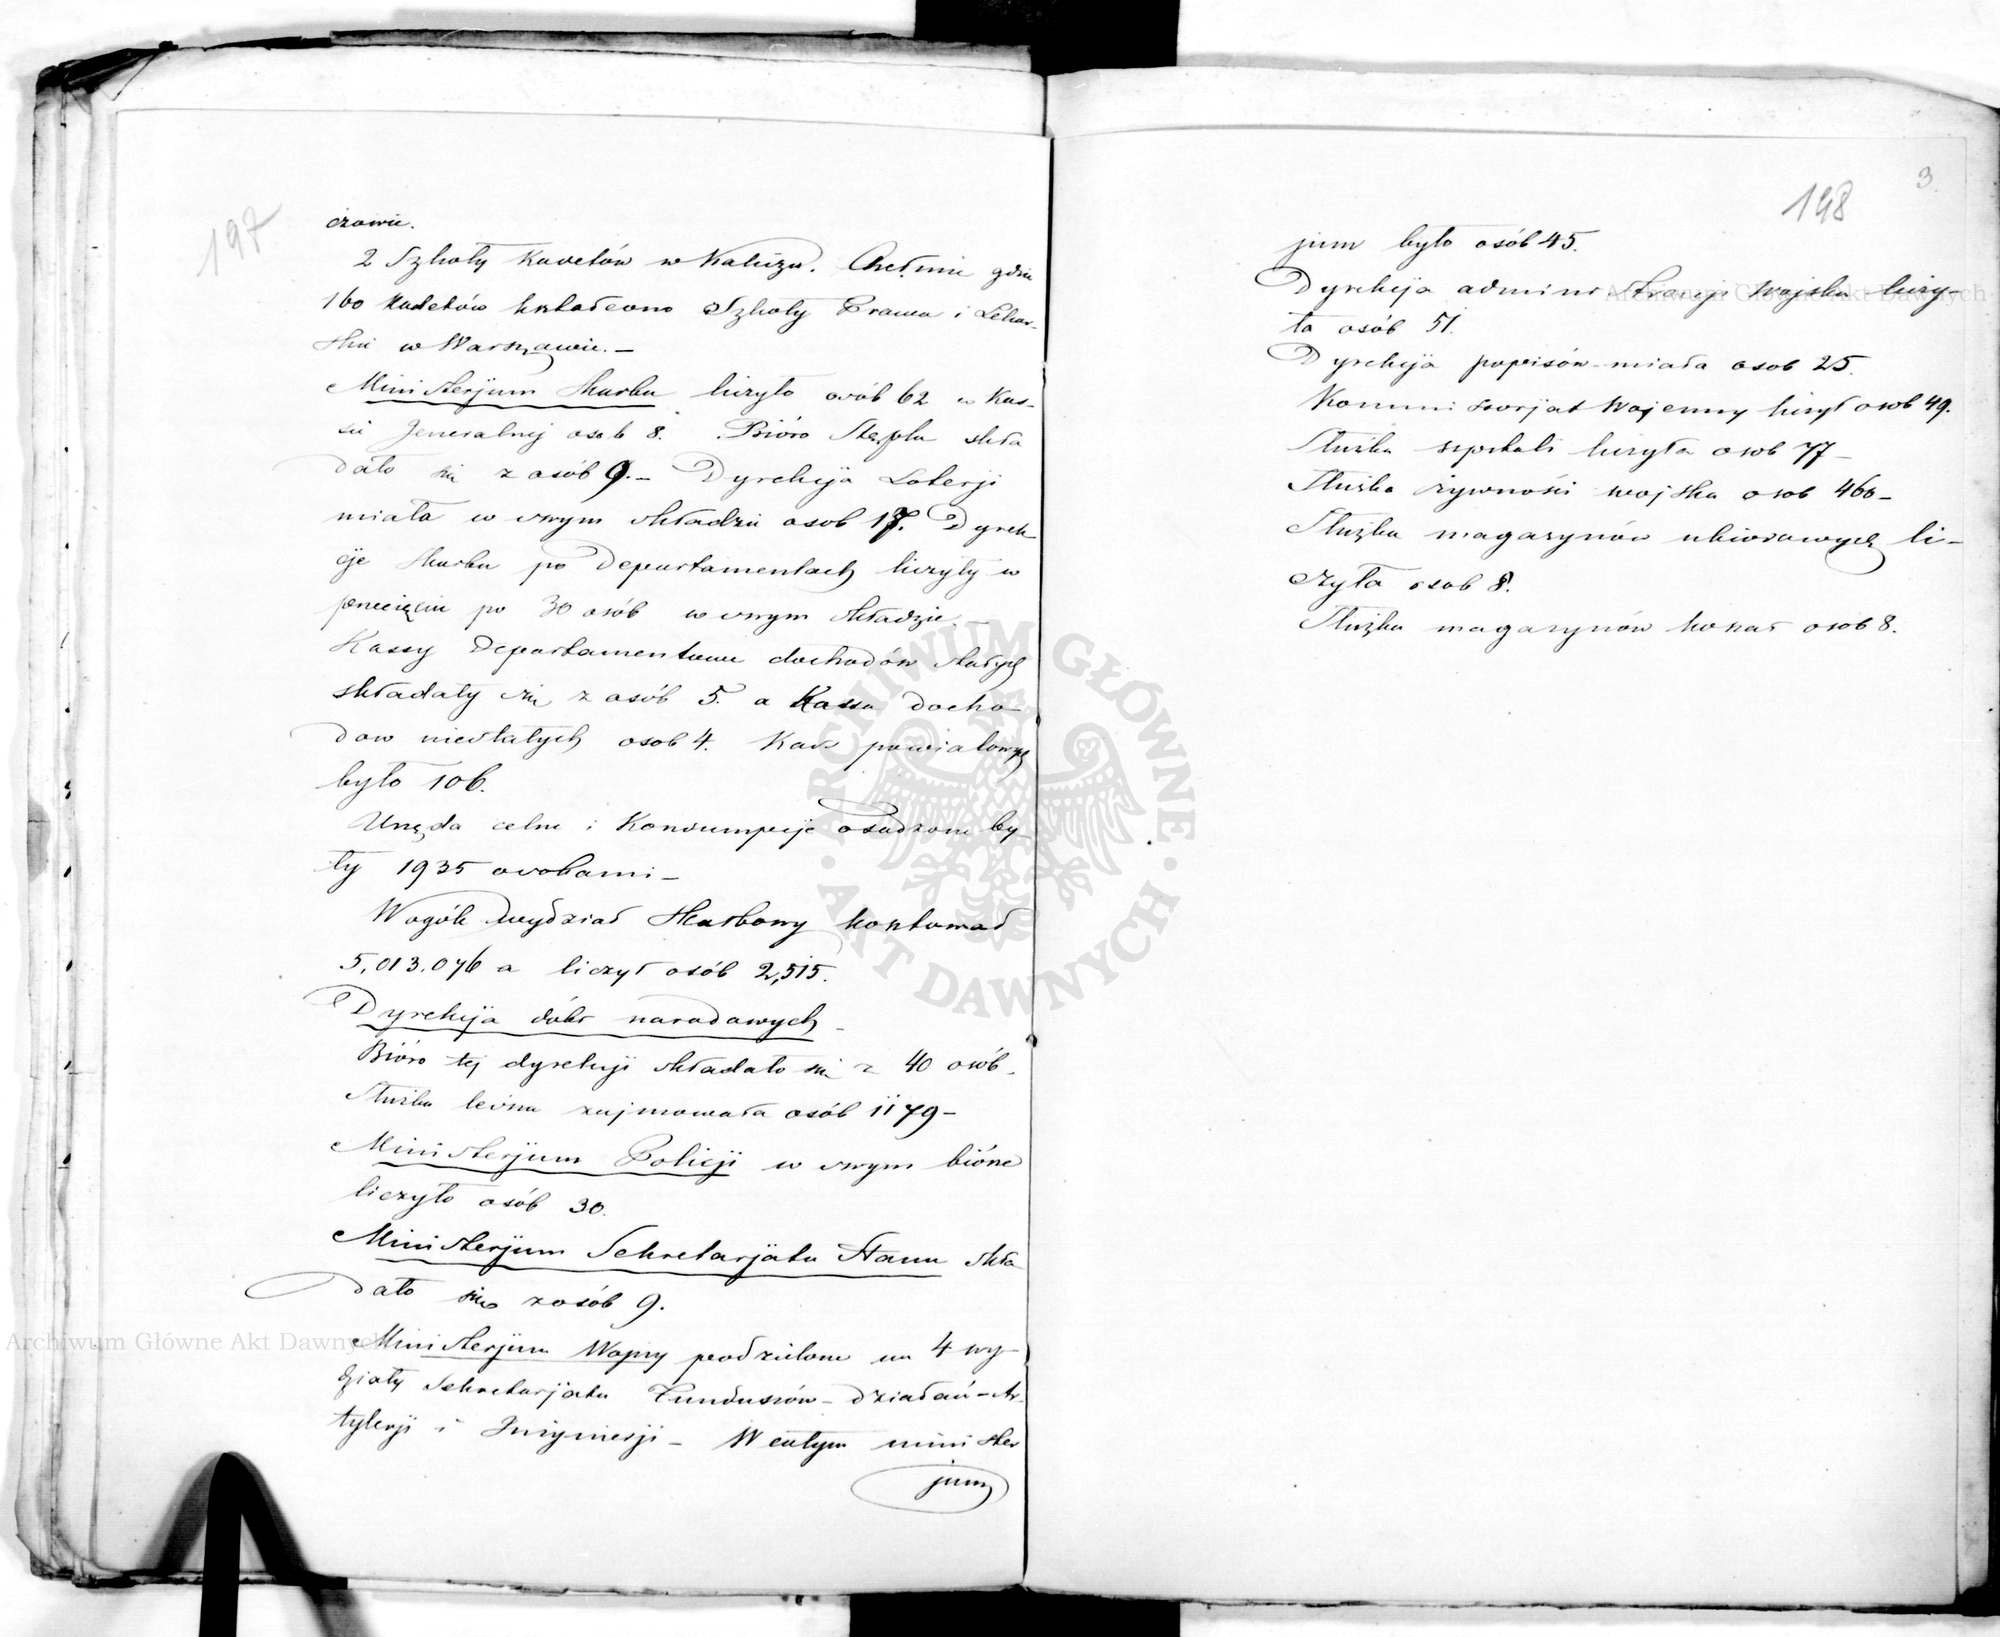 197
czowie.
2 Szkoły Kadetów w Kaliszu. Chełmnie gdzie
160 Kadetów kształcono Szkoły Prawa i Lekar-
skie w Warszawie. —
Ministerjum Skarbu liczyło osób 62 w Kas-
sie Jeneralnej osob 8. Bióro Stępla skła
dało się z osób 9. — Dyrekcja Loterji
miała w swym składzie osob 17. Dyrek
cje Skarbu po Departamentach liczyły w
przecięciu po 30 osób w swym składzie. —
Kassy Departamentowe dochodów stałych
składały się z osób 5. a Kassa docho
dow niestałych osob 4. Kass powiatowych
było 106.
Urzęda celne i Konsumpcje osadzone by
ły 1935 osobami —
Wogóle wydział Skarbowy kosztował
5,013,046 a liczył osób 2,515.
Dyrekcja dóbr narodowych —
Bióro tej dyrekcji składało się z 40 osób.
Służba leśna zajmowała osób 1179 —
Ministerjum Policji w swym biórze
liczyło osób 30.
Ministerjum Sekretarjatu Stanu skła
dało się z osób 9.
Ministerjum Wojny podzielone na 4 wy
działy Sekretarjatu Funduszów — działań — Ar
tylerji i Inżynierji — W całym minister
jum
3.
198
jum było osób 45.
Dyrekcja administracji Wojska liczy-
ła osób 51.
Dyrekcja popisów — miała osob 25.
Kommissorjat Wojenny liczył osob 49.
Służba szpitali liczyła osob 77 —
Służba żywności wojska osob 460 —
Służba magazynów ubiorowych li-
czyła osob 8.
Służba magazynów koszar osob 8.
ARCHIWUM GŁÓWNE
AKT DAWNYCH
Archiwum Główne Akt Dawnych
Archiwum Główne Akt Dawnych